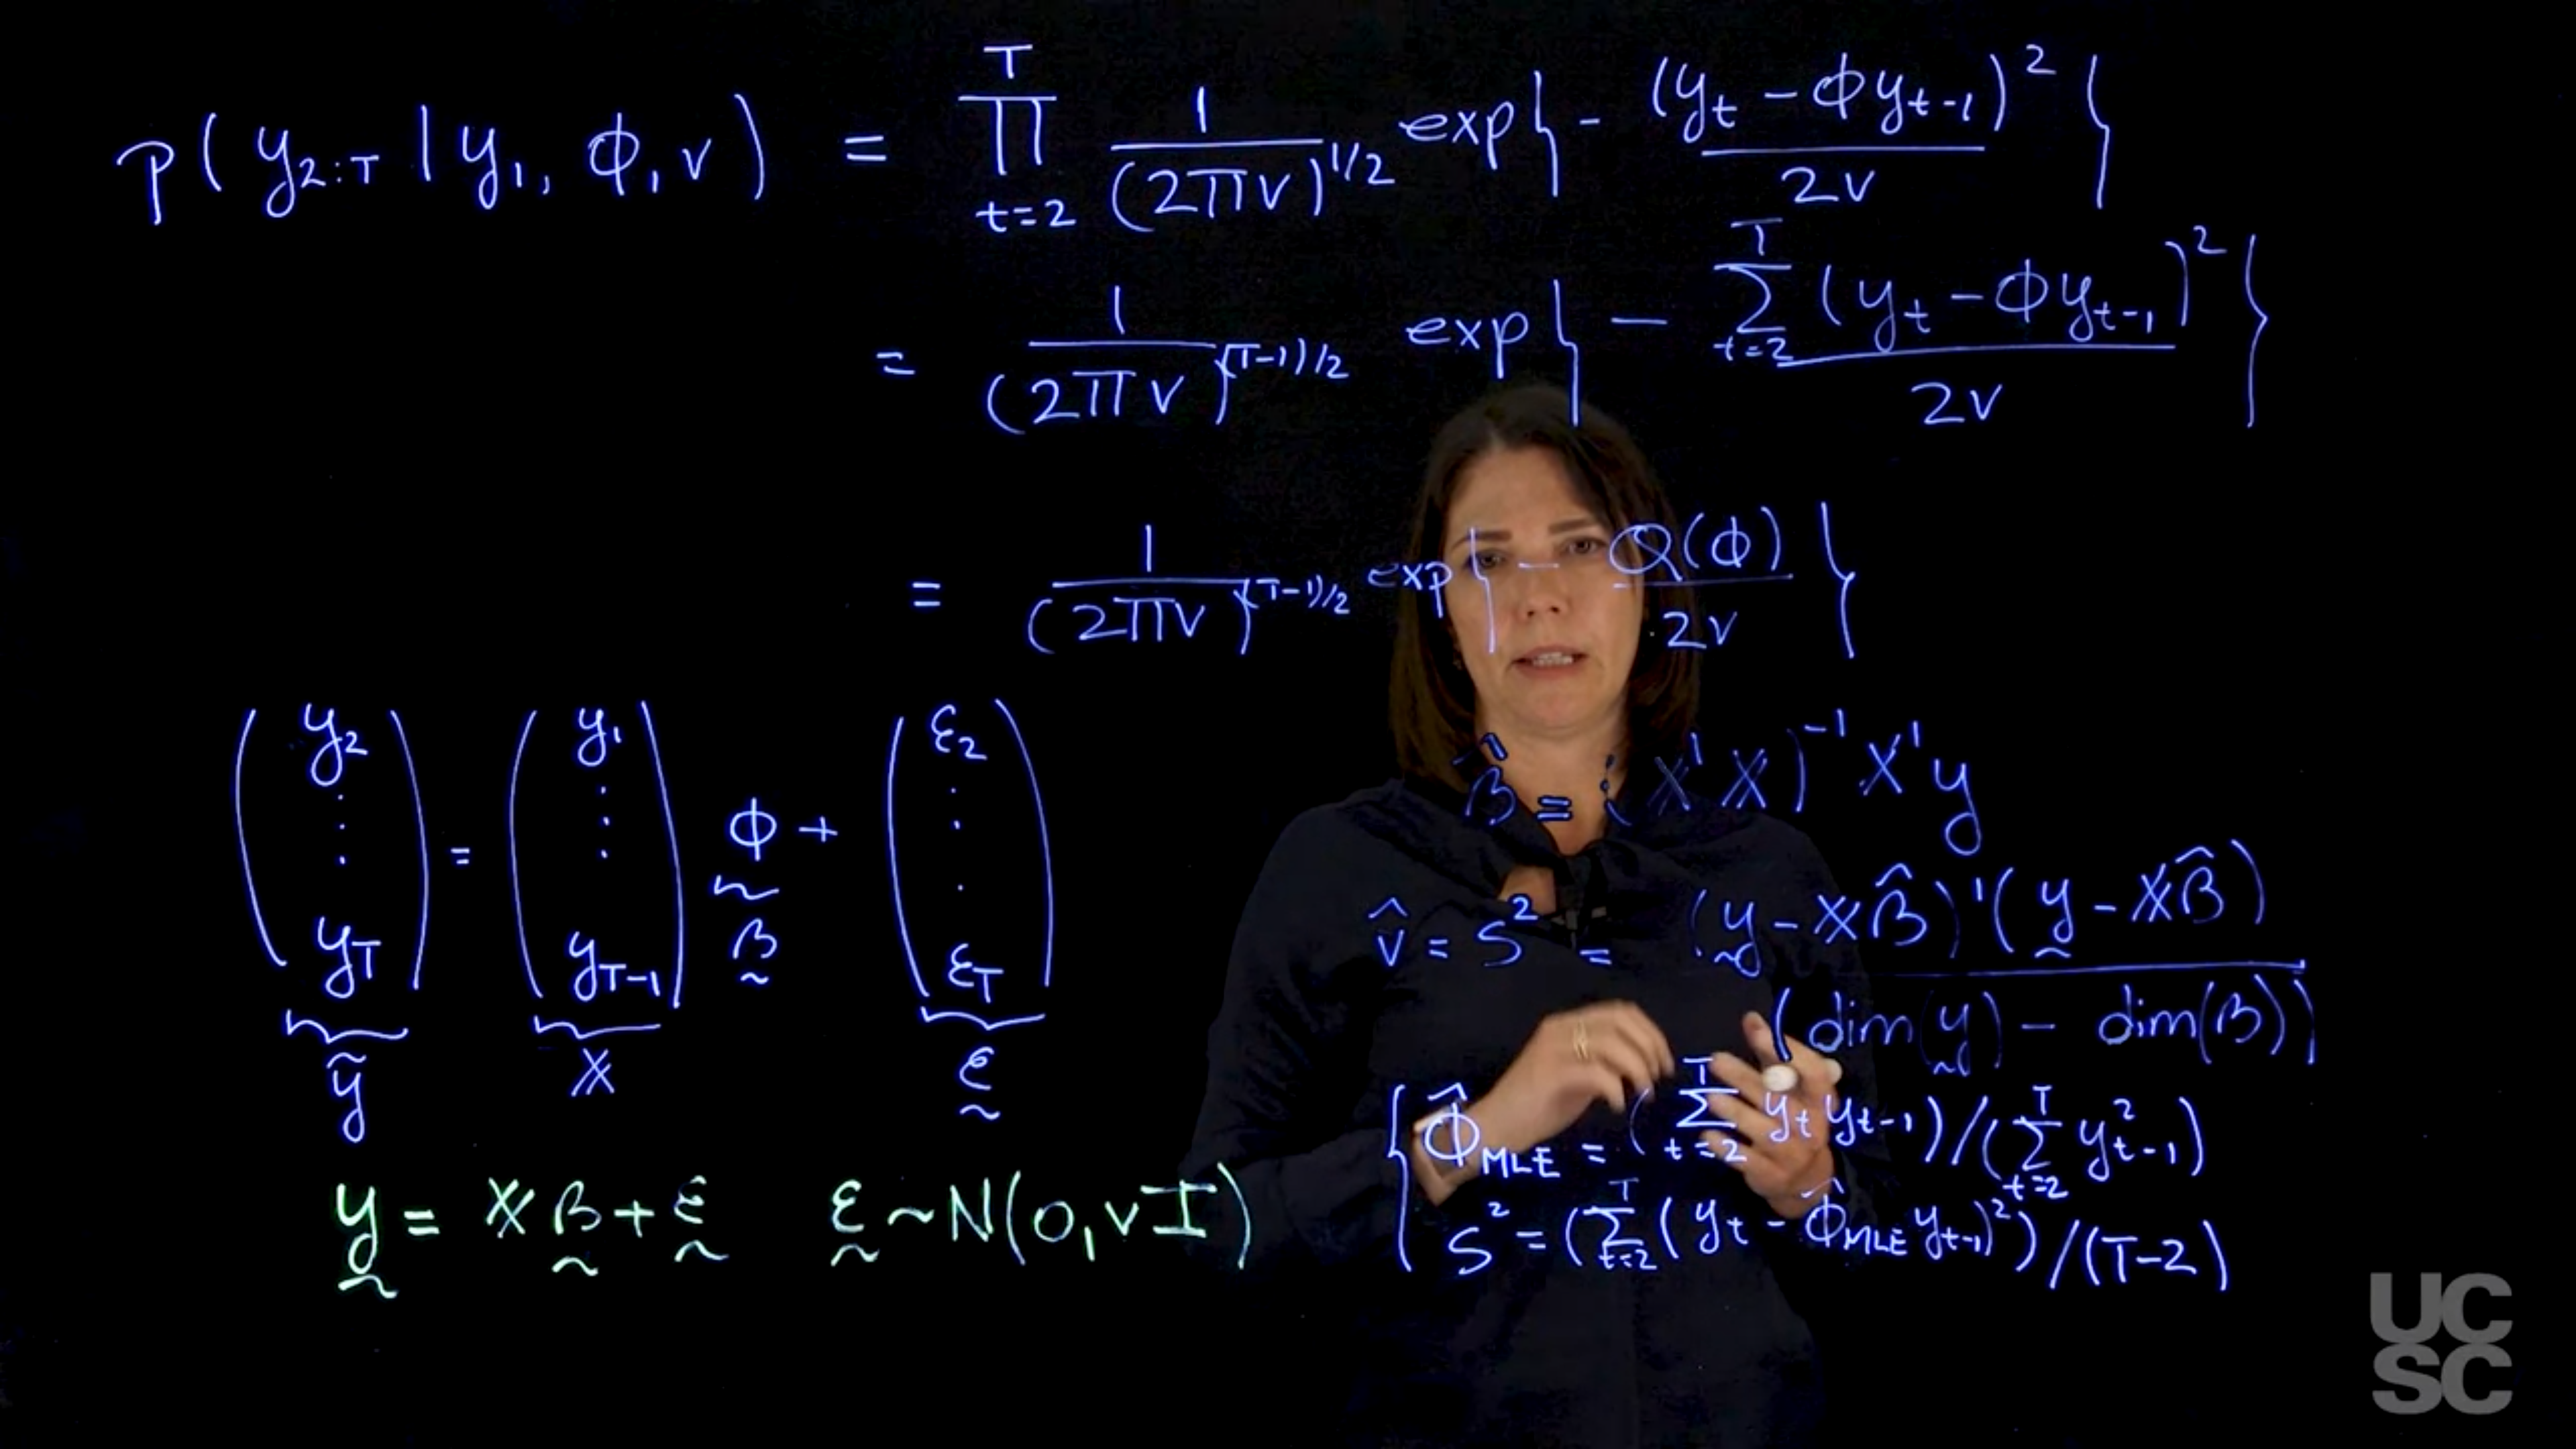 p(y₂:T | y₁, φ, v) = ∏_{t=2}^{T} 1/(2πv)^{1/2} exp{ - (y_t - φy_{t-1})² / 2v }
= 1/(2πv)^{(T-1)/2} exp{ - ∑_{t=2}^{T} (y_t - φy_{t-1})² / 2v }
= 1/(2πv)^{(T-1)/2} exp{ - Q(φ) / 2v }
(y₂ ⋮ y_T) = (y₁ ⋮ y_{T-1}) φ + (ε₂ ⋮ ε_T)
β
ỹ X ε
y = Xβ + ε ε ~ N(0, vI)
β̂ = (X'X)⁻¹ X'y
v̂ = S² = (y - Xβ̂)'(y - Xβ̂) / (dim(y) - dim(β))
φ̂_MLE = (∑_{t=2}^{T} y_t y_{t-1}) / (∑_{t=2}^{T} y²_{t-1})
S² = (∑_{t=2}^{T} (y_t - φ̂_MLE y_{t-1})²) / (T-2)
UC
SC